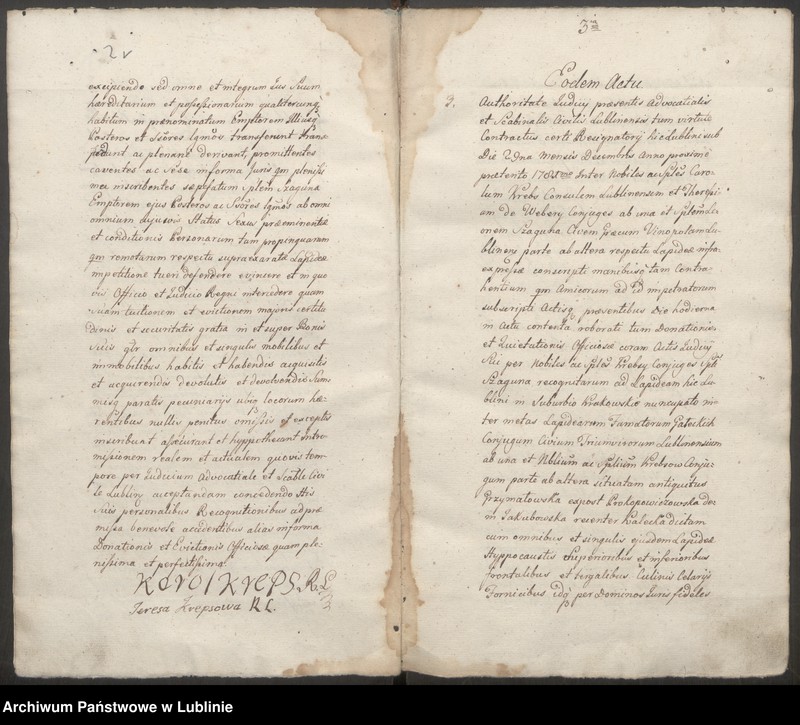 2v
excipiendo sed omne et integrum Jus Suum
hæreditarium et possessionarium qualitercunq
habitum in prænominatum Emptorem Illiusq
Posteros et Ssores Lgmos transferunt trans-
fundunt ac plenarie derivant, promittentes
caventes ac sese in forma Juris qm plenissi-
mea inscribentes sæpefatum Splem Szaguna
Emptorem ejus Posteros ac Ssores Lgmos ab omni
omnium cujusvis Status Sexus præeminentiæ
et conditionis Personarum tam propinquarum
qm remotarum respectu supraexaratæ Lapideæ
impetitione tueri defendere evincere et in quo
vis Officio et Judicio Regni intercedere quam
Suam tuitionem et evictionem majoris certitu
dinis et securitatis gratia in et super Bonis
Suis qbs omnibus et singulis mobilibus et
immobilibus habitis et habendis acquisitis
et acquirendis devolutis et devolvendis Sum-
misq paratis pecuniarijs ubiq locorum hæ-
rentibus nullis penitus omissis et exceptis
inscribunt assecurant et hyppothecant Intro-
missionem realem et actualem quovis tem-
pore per Judicium Advocatiale et Scable Civi
le Lubliny acceptandam concedendo His
Suis personalibus Recognitionibus ad præ
missa benevole accedentibus alias in forma
Donationis et Evictionis Officiosæ quam ple-
nissima et perfectissima.
Karol Kreps R. L
Teresa Krepsowa R L.
3
3
Eodem Actu
3.
Authoritate Judicij præsentis Advocatialis
et Scabinalis Civilis Lublinensis tum virtute
Contractus certi Resignatorij hic Lublini sub
Die 2da Mensis Decembris Anno proximè
præterito 1785 Inter Nobiles ac Sples Caro-
lum Krebs Consulem Lublinensem et Theresi-
am de Webery Conjuges ab una et Splem Le-
onem Szaguna Civem Græcum Vinopolam Lu-
blinens parte ab altera respectu Lapideæ infra
expressæ conscripti manibusq tam Contra-
hentium qm Amicorum ad id impetratorum
subscripti Actisq præsentibus Die hodierna
in Actu contenta roborati tum Donationis
et Quietationis Officiosæ coram Actis Judicij
Sui per Nobiles ac Sples Krebsy Conjuges Spli
Szaguna recognitarum ad Lapideam hic Lu-
blini in Suburbio Krakowskie nuncupato in-
ter metas Lapidearum Famatorum Gałeckich
Conjugum Civium Triumvirorum Lublinensium
ab una et Nblium ac Splium Krebsow Conju-
gum parte ab altera situatam antiquitus
Przymatowska expost Prokopowiczowska de-
in Jakubowska recenter Kałecka dictam
cum omnibus et singulis ejusdem Lapideæ
Hyppocaustis superioribus et inferioribus
frontalibus et tergalibus Culinis Celarijs
Fornicibus idq per Dominos Juris fideles
Archiwum Państwowe w Lublinie